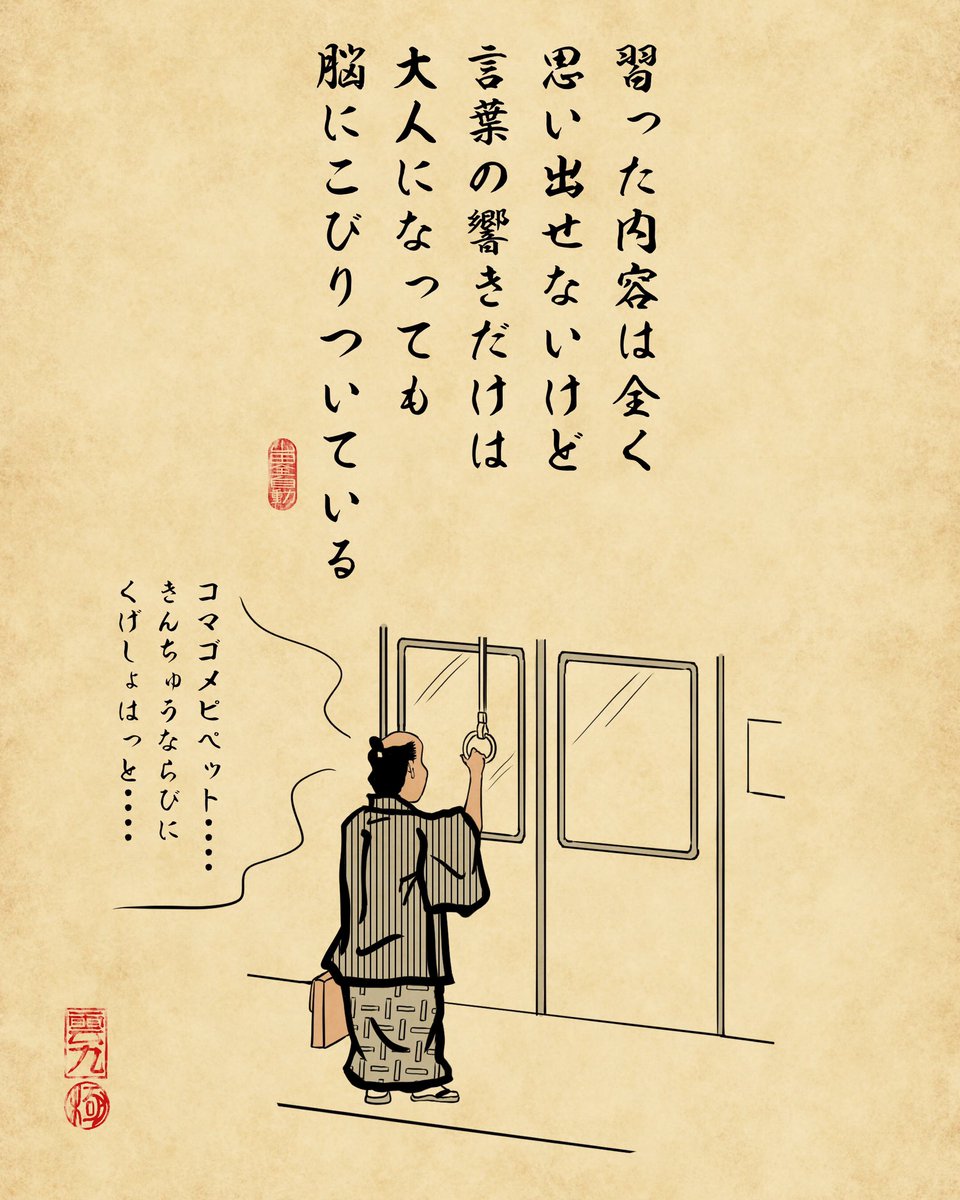 習った内容は全く
思い出せないけど
言葉の響きだけは
大人になっても
脳にこびりついている
コマゴメピペット・・・・・
きんちゅうならびに
くげしょはっと・・・・・